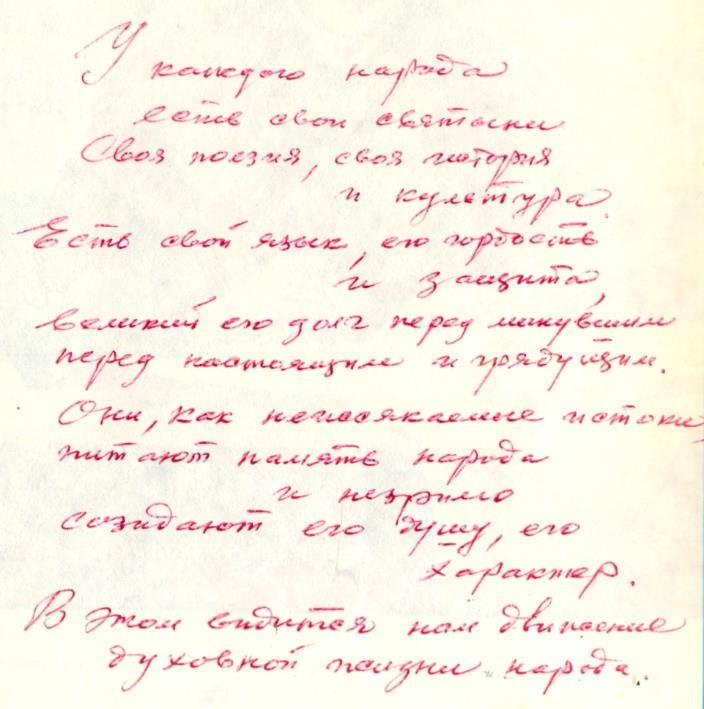 У каждого народа
есть свои святыни
Своя поэзия, своя история
и культура.
Есть свой язык, его гордость
и защита,
великий его долг перед минувшим
перед настоящим и грядущим.
Они, как неиссякаемые истоки,
питают память народа
и незримо
созидают его душу, его
характер.
В этом видится нам движение
духовной жизни народа.